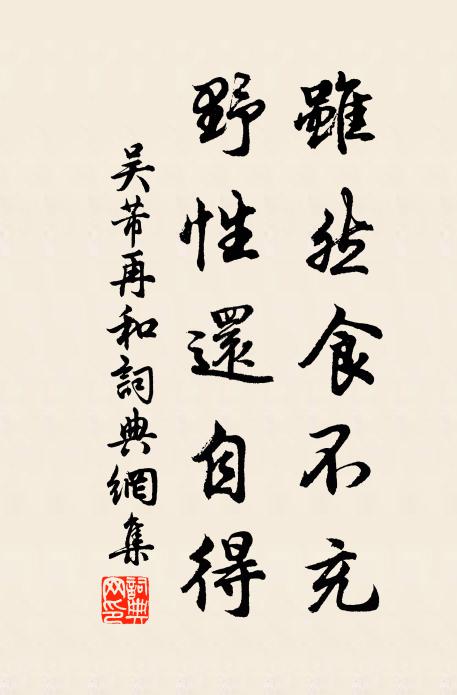 雖然食不充
野性還自得
吳芾再和詞典網集
詞典
网印